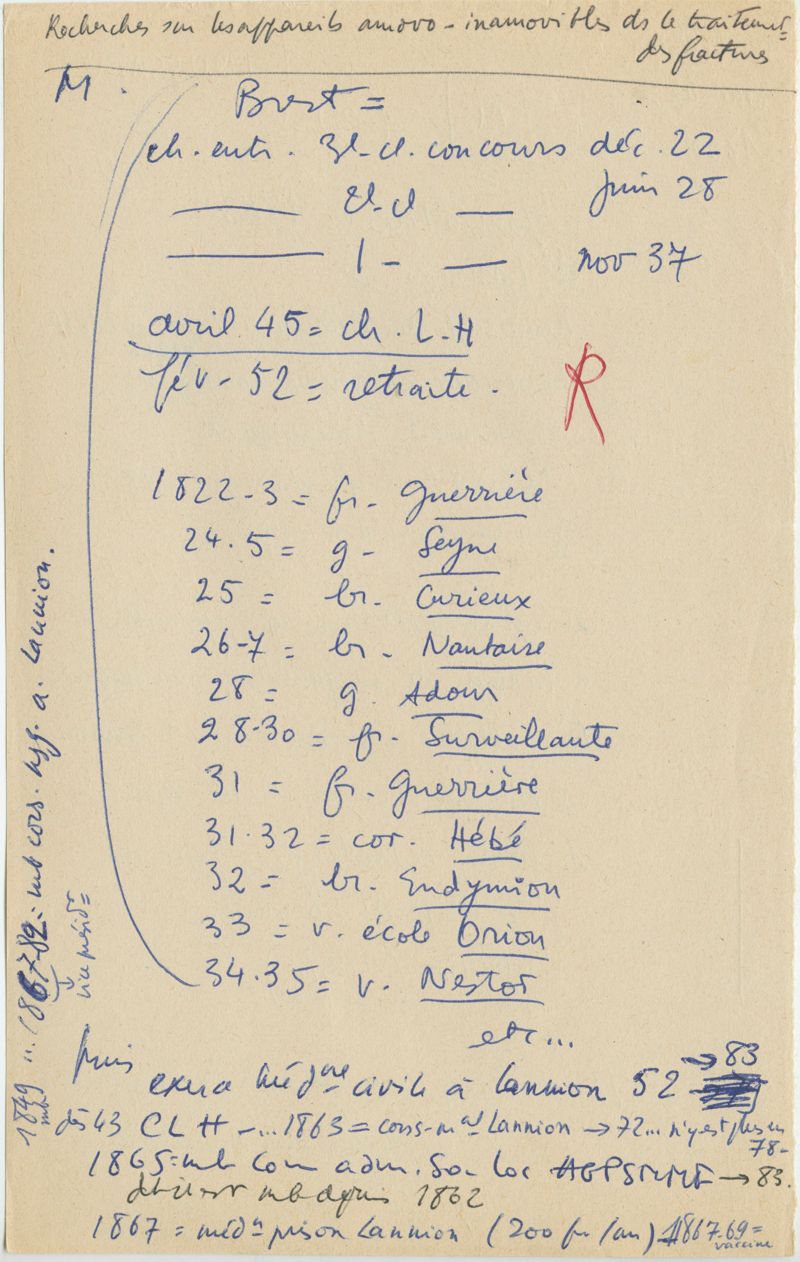 Recherches sur les appareils amovo-inamovibles ds le traitemt=
des fractures
M.
Brest =
ch. entr. 3e-cl. concours déc. 22
——— 2e-cl — juin 28
——— 1 - — nov 37
avril 45 = ch. L.H
fév - 52 = retraite.
R
1822-3 = fr. Guerrière
24.5 = g - Seyne
25 = br. Curieux
26-7 = br - Nantaise
28 = g. Adour
28-30 = fr. Surveillante
31 = fr. Guerrière
31.32 = cor. Hébé
32 = br. Endymion
33 = v. école Orion
34.35 = v. Nestor
etc...
puis
exerce médne civile à Lannion 52 → 83
dès 43 CLH -... 1863 = cons-mal Lannion → 72... n'y est plus en
78-
1865 = mb Com adm. Soc loc AGPSMMF → 83.
mb depuis 1862
1867 = médn prison Lannion (200 fr /an) 1867-69 =
vaccine
1849 mb... 1867-82 = mb cons. hyg. a. Lannion.
vice présidt =